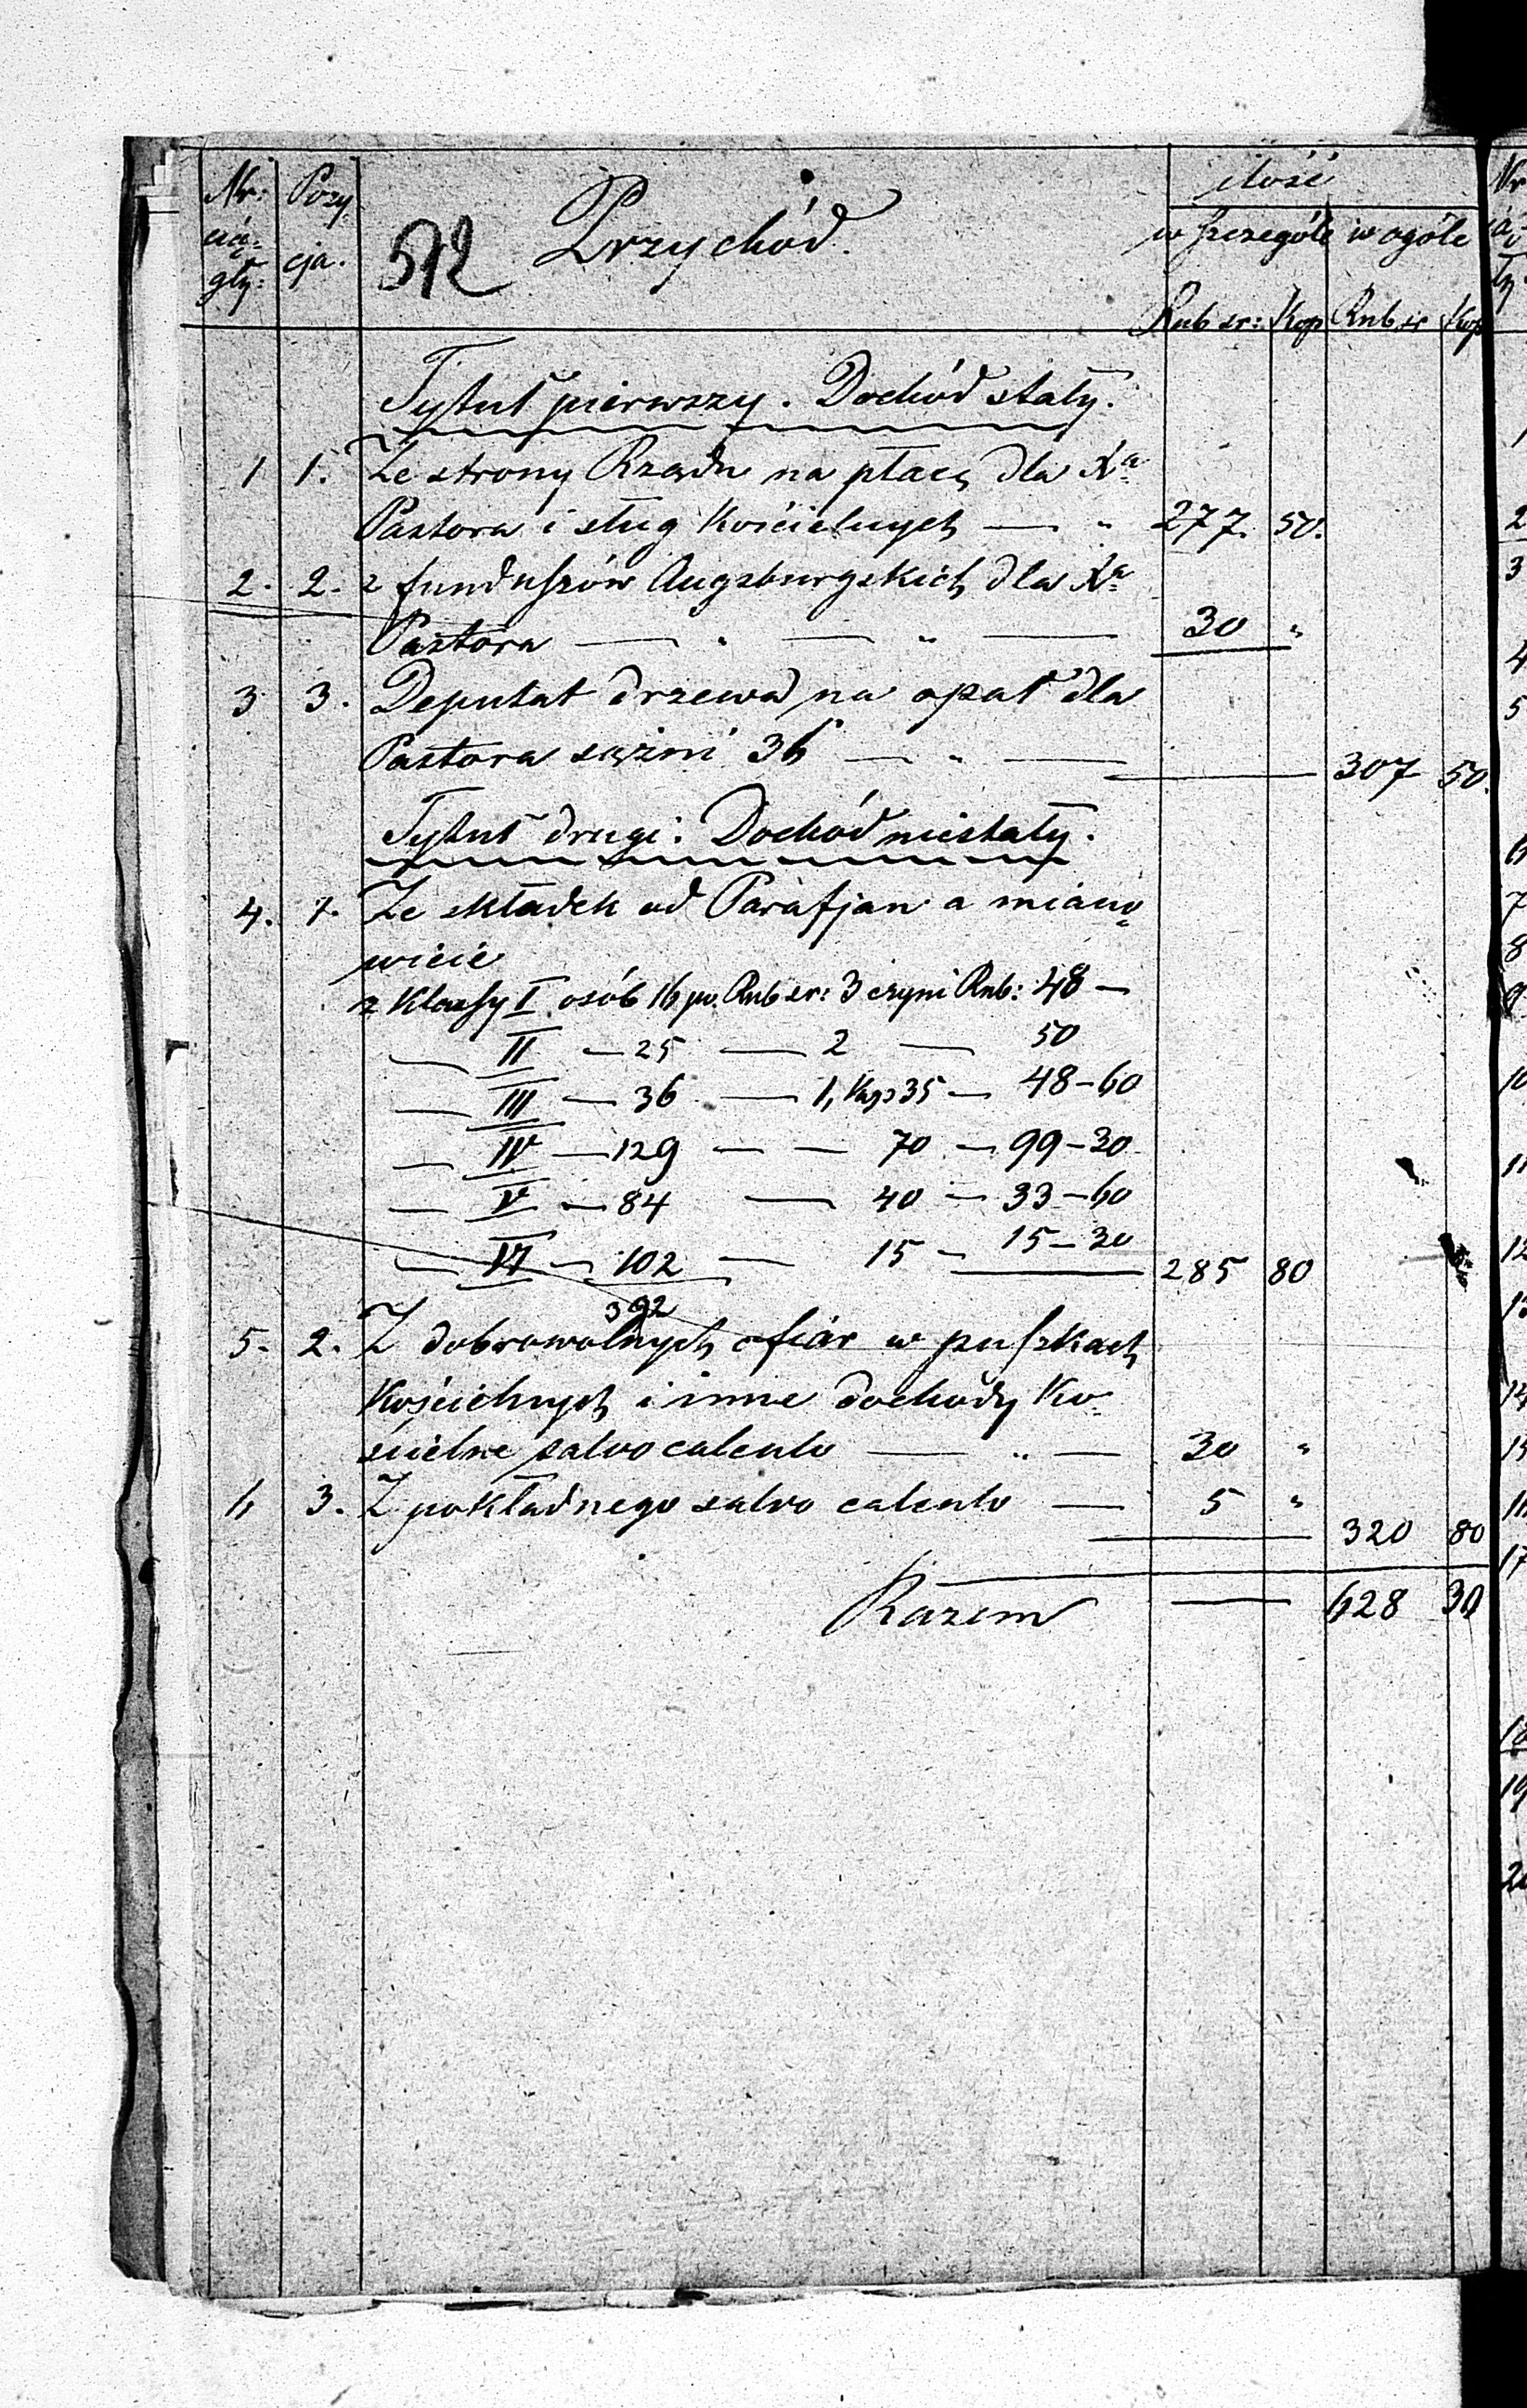 Nr: Pozy- 512 Przychód. ilość
cią- cja. w szczególe w ogóle
gły:
Rub sr: Kop Rub sr Kop
Tytuł pierwszy. Dochód stały.
1 1. Ze strony Rządu na płacę dla Xa
Pastora i sług Kościelnych — " 277. 50.
2. 2. z funduszów Augsburgskich dla Xa
Pastora — " — " — 30 "
3 3. Deputat drzewa na opał dla
Pastora sążni 36 — " — 307 50.
Tytuł drugi. Dochód niestały.
4. 1. Ze składek od Parafjan a miano-
wicie
z Klassy I osób 16 po Rub sr: 3 czyni Rub: 48 —
— II — 25 — 2 — 50
— III — 36 — 1, Kop 35 — 48-60
— IV — 129 — — 70 — 99-30
— V — 84 — 40 — 33-60
— VI — 102 — 15 — 15-30 285 80
392
5. 2. Z dobrowolnych ofiar w puszkach
Kościelnych i inne dochody Ko-
ścielne salvo calculo — " — 30 "
6 3. Z pokładnego salvo calculo — 5 "
320 80
Razem — 628 30